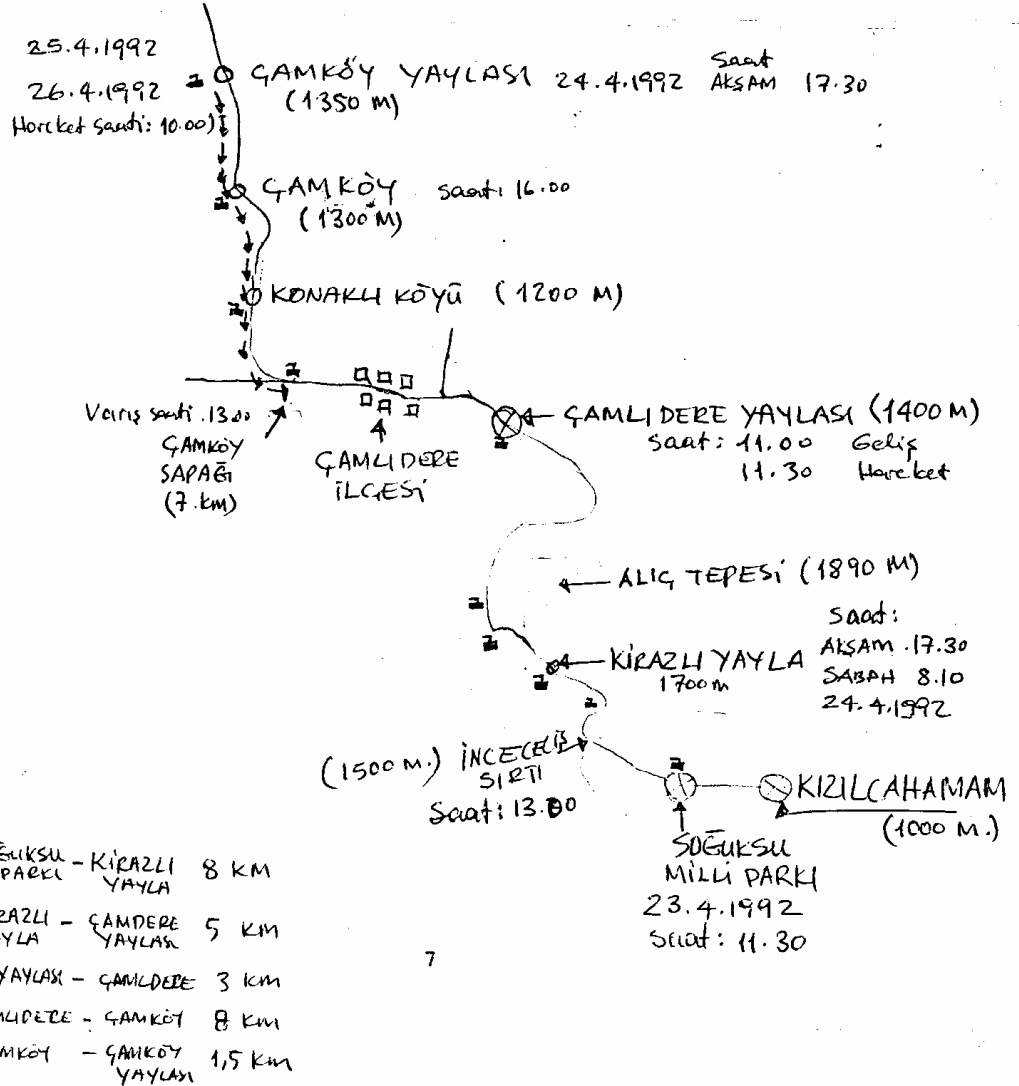 25.4.1992
26.4.1992
Hareket Saati: 10.00)
ÇAMKÖY YAYLASI 24.4.1992 Saat AKŞAM 17.30
(1350 M)
ÇAMKÖY Saat: 16.00
(1300 M)
KONAKLI KÖYÜ (1200 M)
Varış saati .13.00
ÇAMKÖY
SAPAĞI
(7.km)
ÇAMLIDERE
İLÇESİ
ÇAMLIDERE YAYLASI (1400 M)
Saat: 11.00 Geliş
11.30 Hareket
ALIÇ TEPESİ (1890 M)
KİRAZLI YAYLA
1700m
Saat:
AKŞAM .17.30
SABAH 8.10
24.4.1992
(1500 M.) İNCEGELİŞ
SIRTI
Saat: 13.00
KIZILCAHAMAM
(1000 M.)
SOĞUKSU
MİLLİ PARKI
23.4.1992
Saat: 11.30
ĞUKSU
PARKI - KİRAZLI YAYLA 8 KM
RAZLI
YLA - ÇAMDERE YAYLASI 5 KM
YAYLASI - ÇAMLDERE 3 KM
MLIDERE - ÇAMKÖY 8 KM
MKÖY - ÇAMKÖY YAYLASI 1,5 KM
7